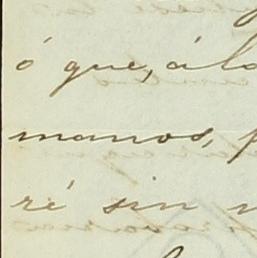 ó que, á lo
manos,
ré sin